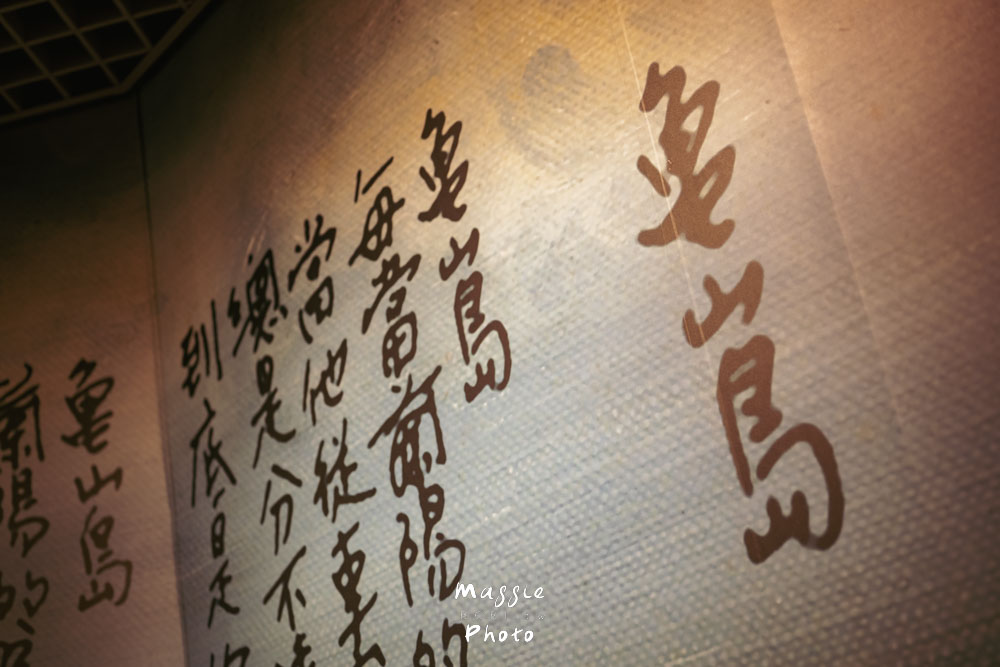 龜山島
龜山島
每當蘭陽的
當他從車
總是分不清
到底是
龜山島
蘭陽的
Maggie
Photo